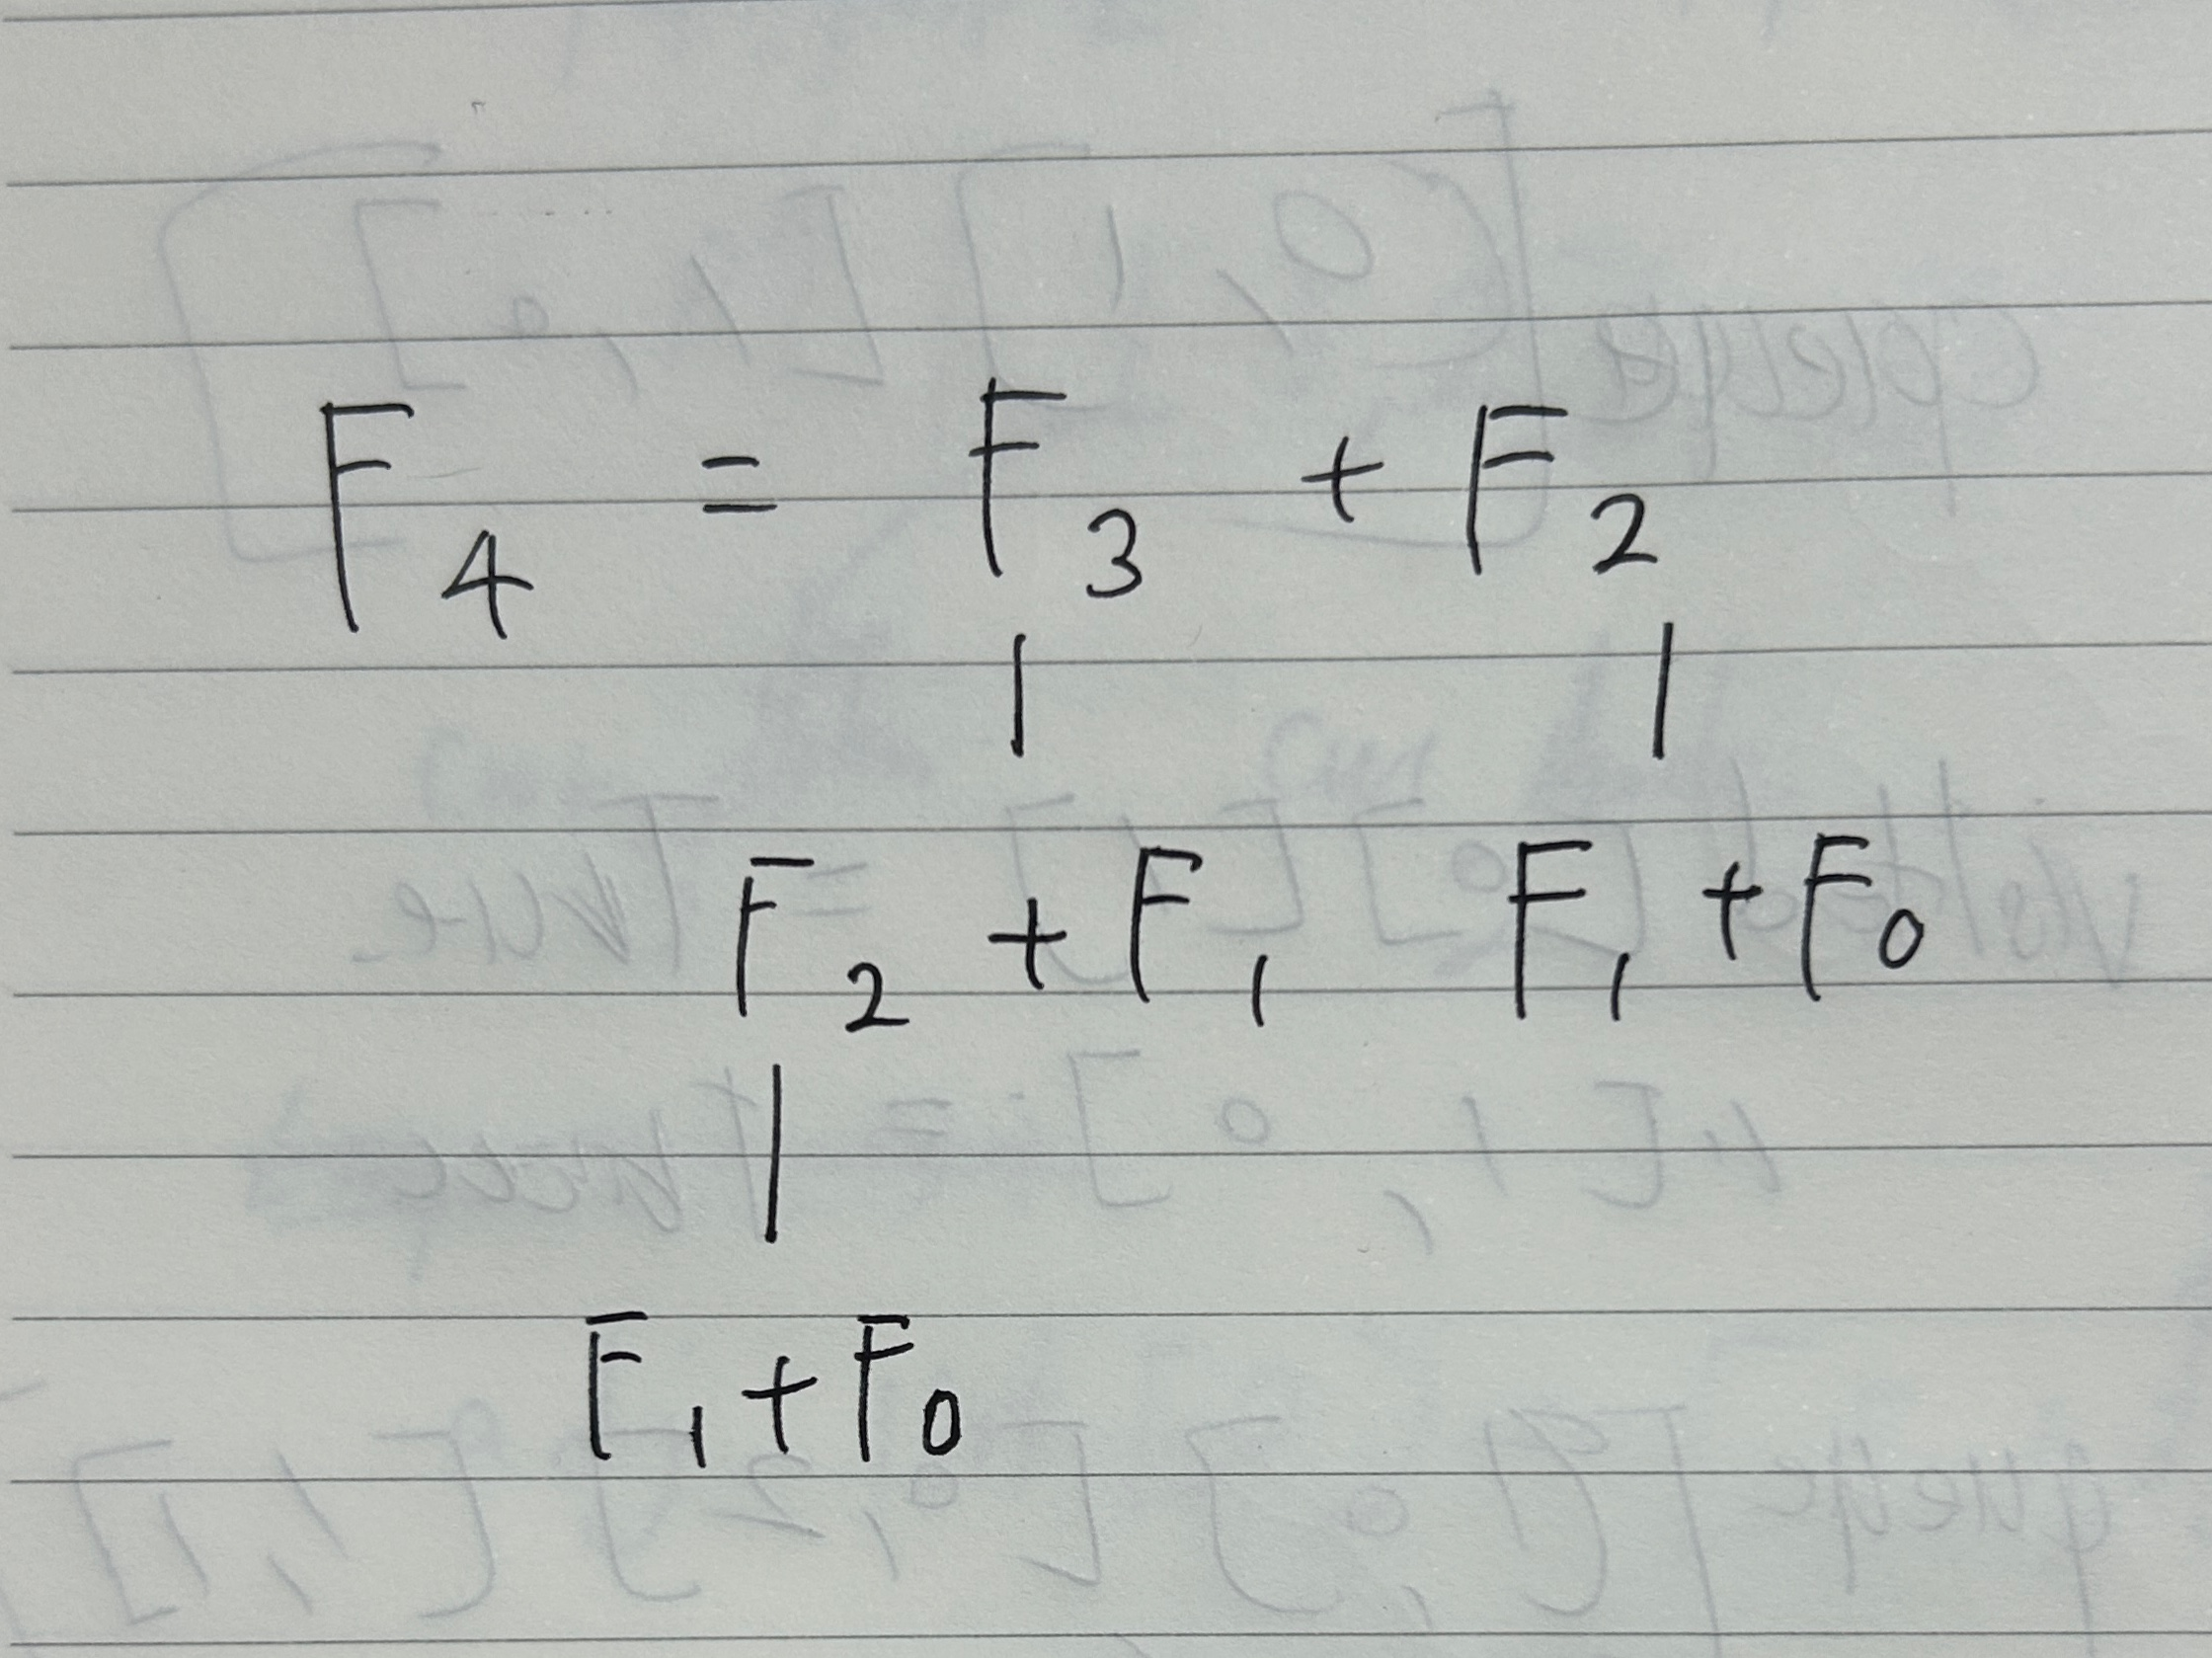 F₄ = F₃ + F₂
F₂ + F₁ F₁ + F₀
F₁ + F₀